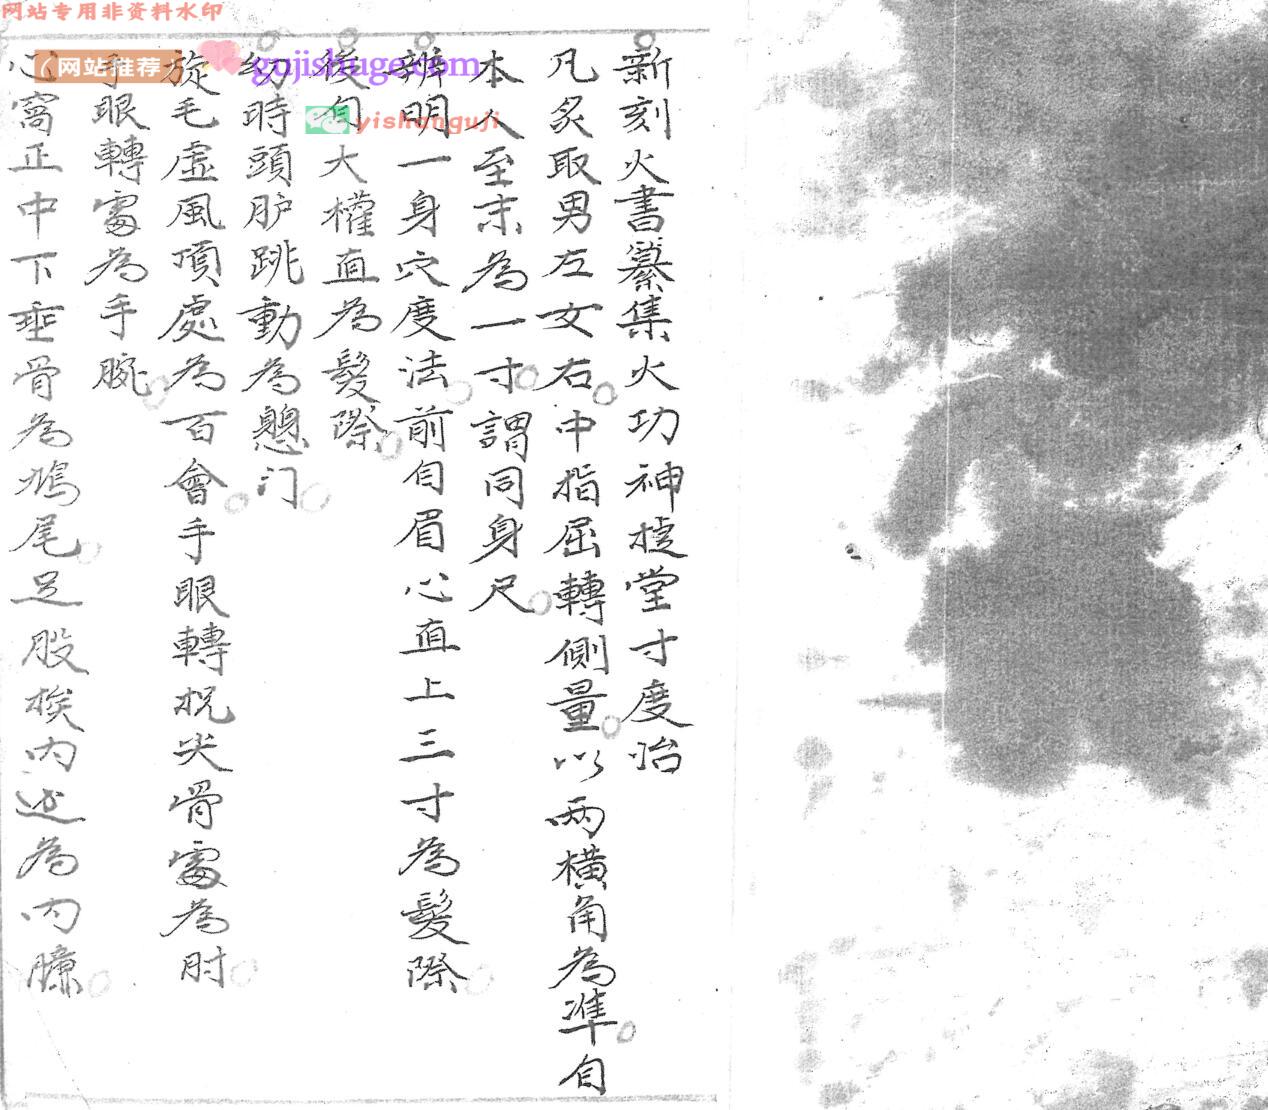 新刻火書纂集火功神捷堂寸度治
凡炙取男左女右中指屈轉側量以兩橫角為準自
本人至末為一寸謂同身尺
辨明一身穴度法前自眉心直上三寸為髮際
後自大權直為髮際
幼時頭胪跳動為門
旋毛虛風頂處為百會手眼轉尖骨處為肘
手眼轉處為手腕
心窩正中下垂骨為鳩尾足股挨內近為內臁
网站专用非资料水印
网站推荐
gujishuge.com
yishanguji